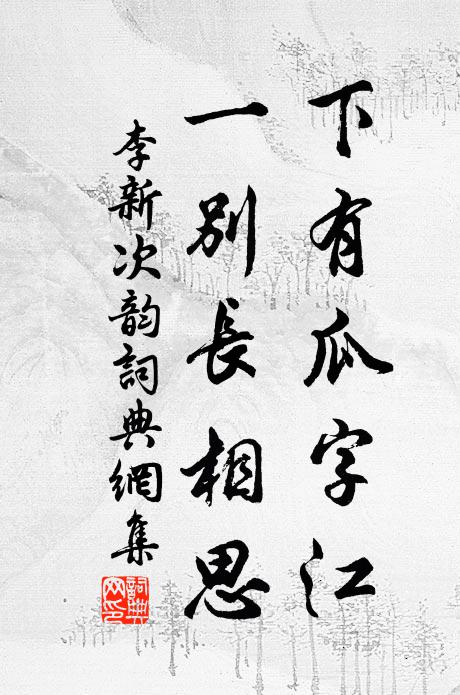 下有瓜字江
一別長相思
李新次韵詞典網集
詞典網印